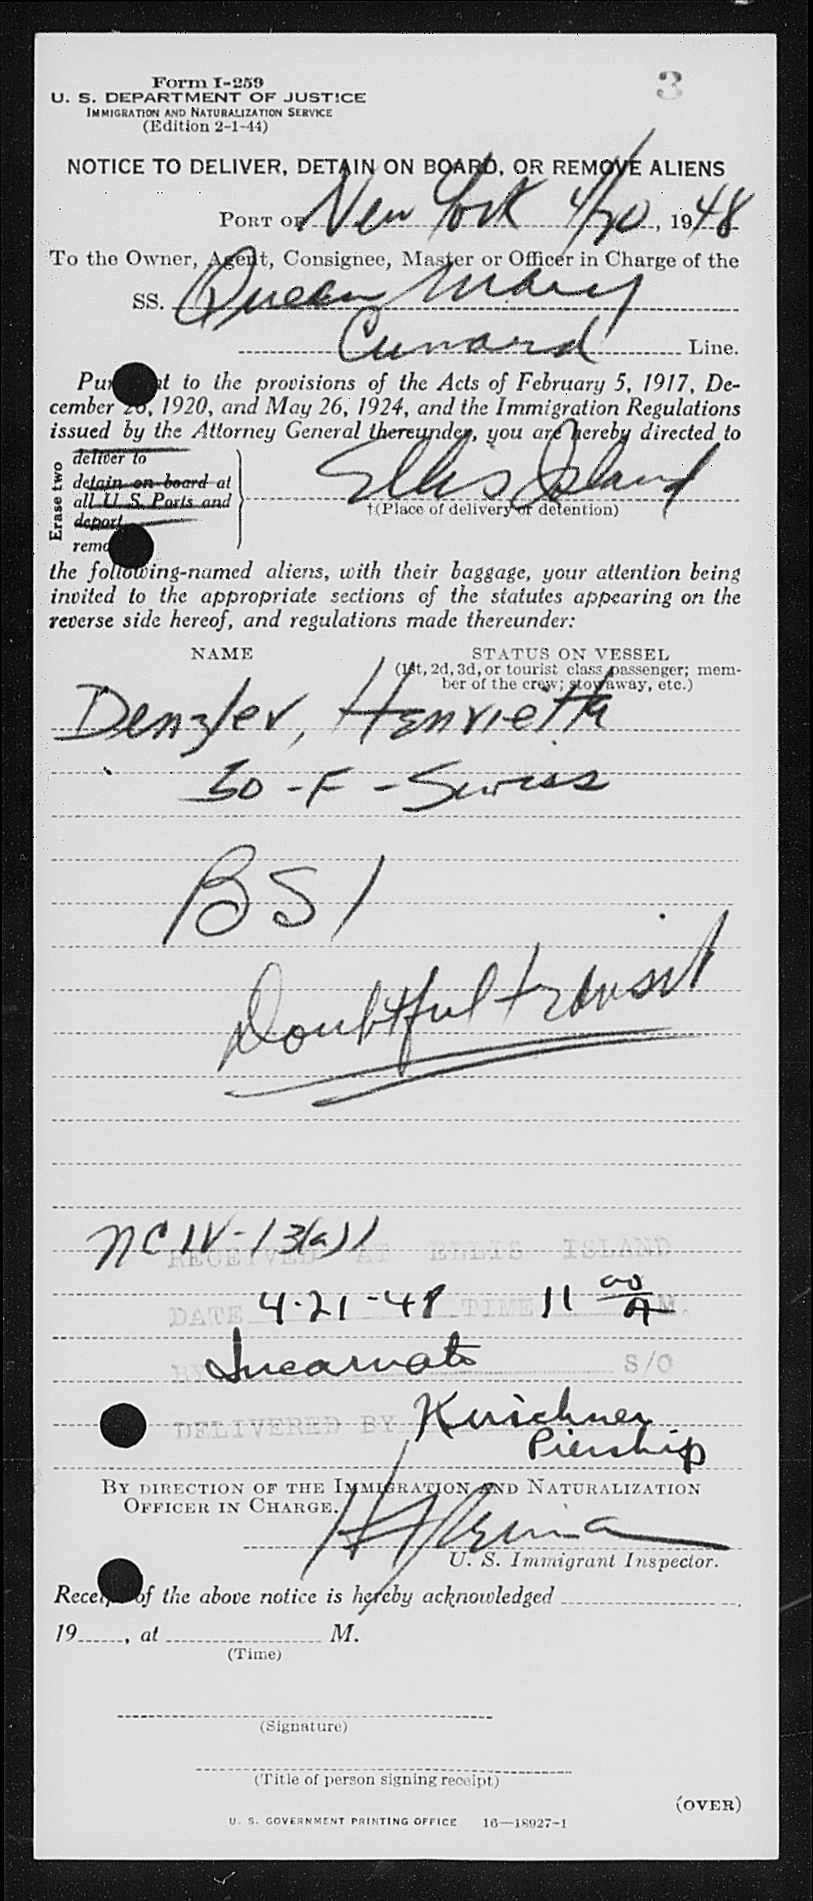 Form I-259
3
U. S. DEPARTMENT OF JUSTICE
IMMIGRATION AND NATURALIZATION SERVICE
(Edition 2-1-44)
NOTICE TO DELIVER, DETAIN ON BOARD, OR REMOVE ALIENS
PORT OF New York 4/20, 1948
To the Owner, Agent, Consignee, Master or Officer in Charge of the
SS. Queen Mary
Cunard Line.
Pu t to the provisions of the Acts of February 5, 1917, De-
cember 26, 1920, and May 26, 1924, and the Immigration Regulations
issued by the Attorney General thereunder, you are hereby directed to
Erase two
deliver to
detain on board at
all U. S. Ports and
deport
remo
Ellis Island
†(Place of delivery or detention)
the following-named aliens, with their baggage, your attention being
invited to the appropriate sections of the statutes appearing on the
reverse side hereof, and regulations made thereunder:
NAME STATUS ON VESSEL
(1st, 2d, 3d, or tourist class passenger; mem-
ber of the crew; stowaway, etc.)
Denzler, Henrietta
30 - F - Swiss
BSI
Doubtful transit
NC IV-13(a)1
RECEIVED AT ELLIS ISLAND
DATE 4-21-48 TIME 11 00 A M.
BY Incarnato S/O
DELIVERED BY Kirschner
Pienship
BY DIRECTION OF THE IMMIGRATION AND NATURALIZATION
OFFICER IN CHARGE.
U. S. Immigrant Inspector.
Receipt of the above notice is hereby acknowledged
19 , at M.
(Time)
(Signature)
(Title of person signing receipt)
(OVER)
U. S. GOVERNMENT PRINTING OFFICE 16—18927-1